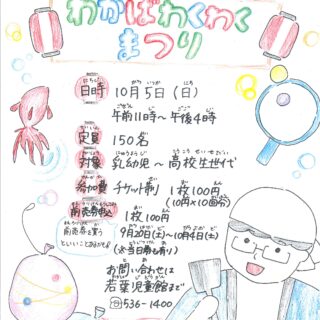 わかばわくわく
まつり
日時 10月5日(日)
午前11時〜午後4時
定員 150名
対象 乳幼児〜高校生世代
参加費 チケット制 1枚100円
(10円×10回分)
前売券申込 1枚100円
前売券を買う
といいことあるかも
9月20日(土)〜10月4日(土)
(※当日券も有り)
お問い合わせは
若葉児童館まで
☎536-1400